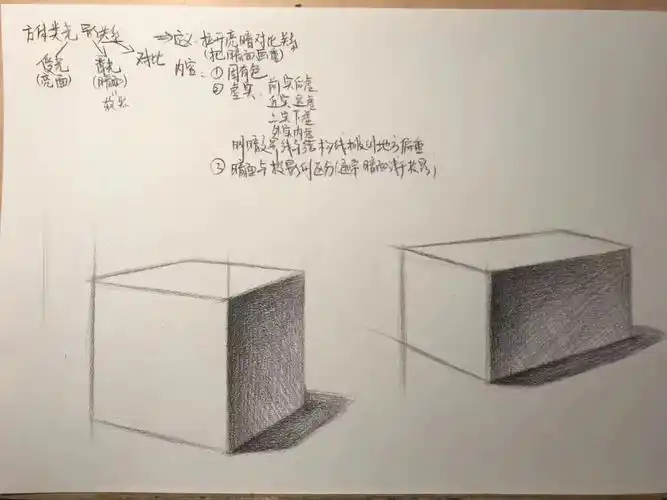 方体类光影类型 ⇒定义:拉开亮暗对比关系
(把暗面画重)
受光 背光 对比
(亮面) (暗面)
内容:①固有色
②虚实:前实后虚
近实远虚
上实下虚
外实内虚
明暗交界线与结构线相交的地方偏重
③暗面与投影的区分(通常暗面浅于投影)